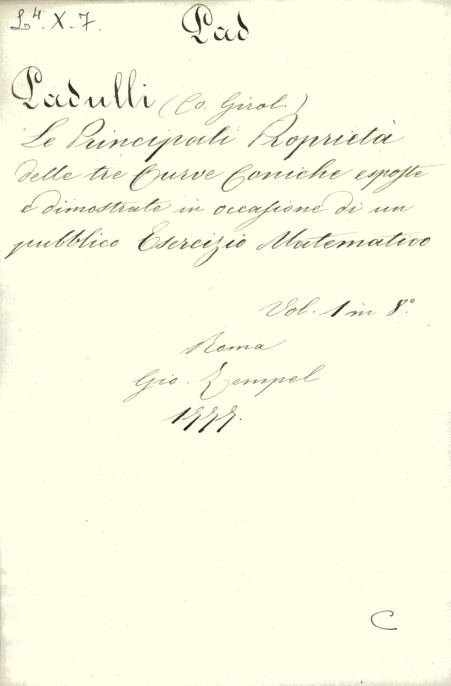 L⁴. X. 7.
Pad
Padulli (Co. Girol.)
Le Principali Proprietà
delle tre Curve Coniche esposte
e dimostrate in occasione di un
pubblico Esercizio Matematico
Vol. 1 in 8°.
Roma
Gio. Zempel
1777.
C